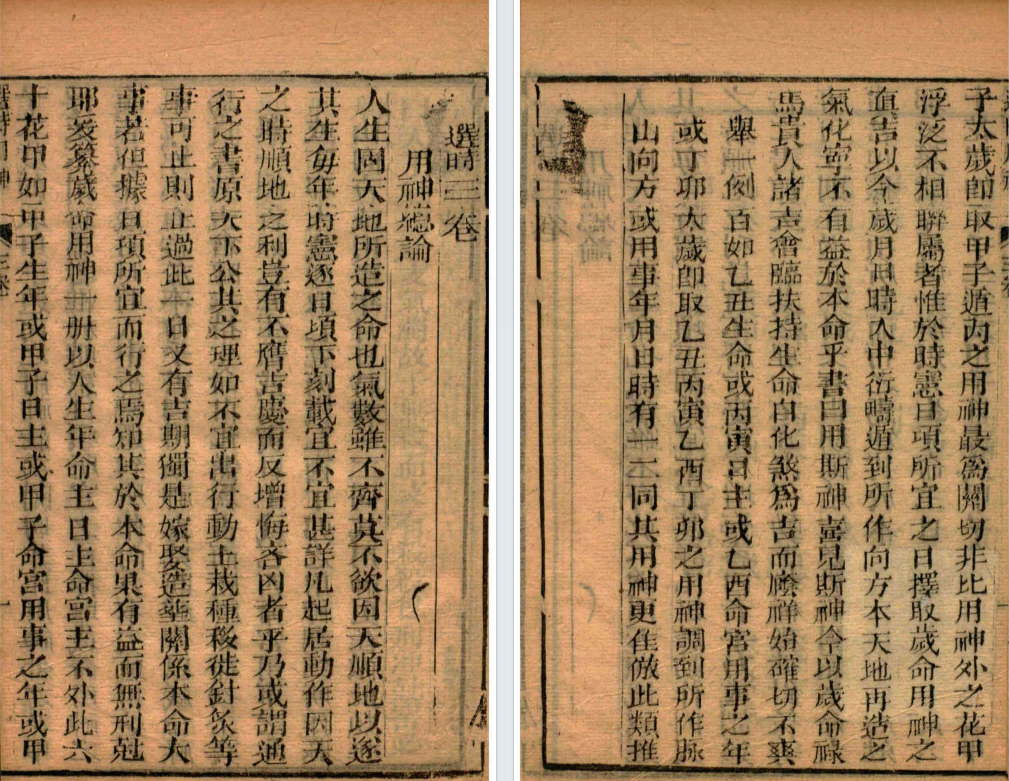 選時三卷
用神總論
人生固天地所造之命也氣數雖不齊莫不欲因天順地以遂
其生每年時憲逐日項下刻載宜不宜甚詳凡起居動作因天
之時順地之利豈有不膺吉慶而反增悔吝凶者乎乃或謂通
行之書原天下公其之理如不宜出行動土栽種移徙針灸等
事可止則止過此一日又有吉期獨是嫁娶造葬關係本命大
事若但據日項所宜而行之焉知其於本命果有益而無刑尅
耶爰纂歲命用神一册以人生年命主日主命宮主不外此六
十花甲如甲子生年或甲子日主或甲子命宮用事之年或甲
子太歲卽取甲子遁丙之用神最爲關切非比用神外之花甲
浮泛不相聯屬者惟於時憲日項所宜之日擇取歲命用神之
宜吉以今歲月日時入中衍疇遁到所作向方本天地再造之
氣化寧不有益於本命乎書曰用斯神喜見斯神今以歲命祿
馬貴人諸吉會臨扶持生命自化煞爲吉而膺祥始確切不爽
舉一例百如乙丑生命或丙寅日主或乙酉命宮用事之年
或丁卯太歲卽取乙丑丙寅乙酉丁卯之用神調到所作脉
山向方或用事年月日時有一二同其用神更佳倣此類推